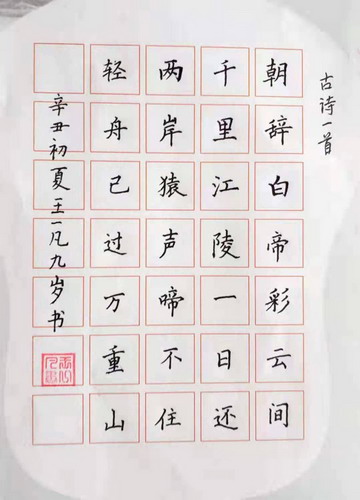 古诗一首
朝辞白帝彩云间
千里江陵一日还
两岸猿声啼不住
轻舟已过万重山
辛丑初夏王一凡九岁书